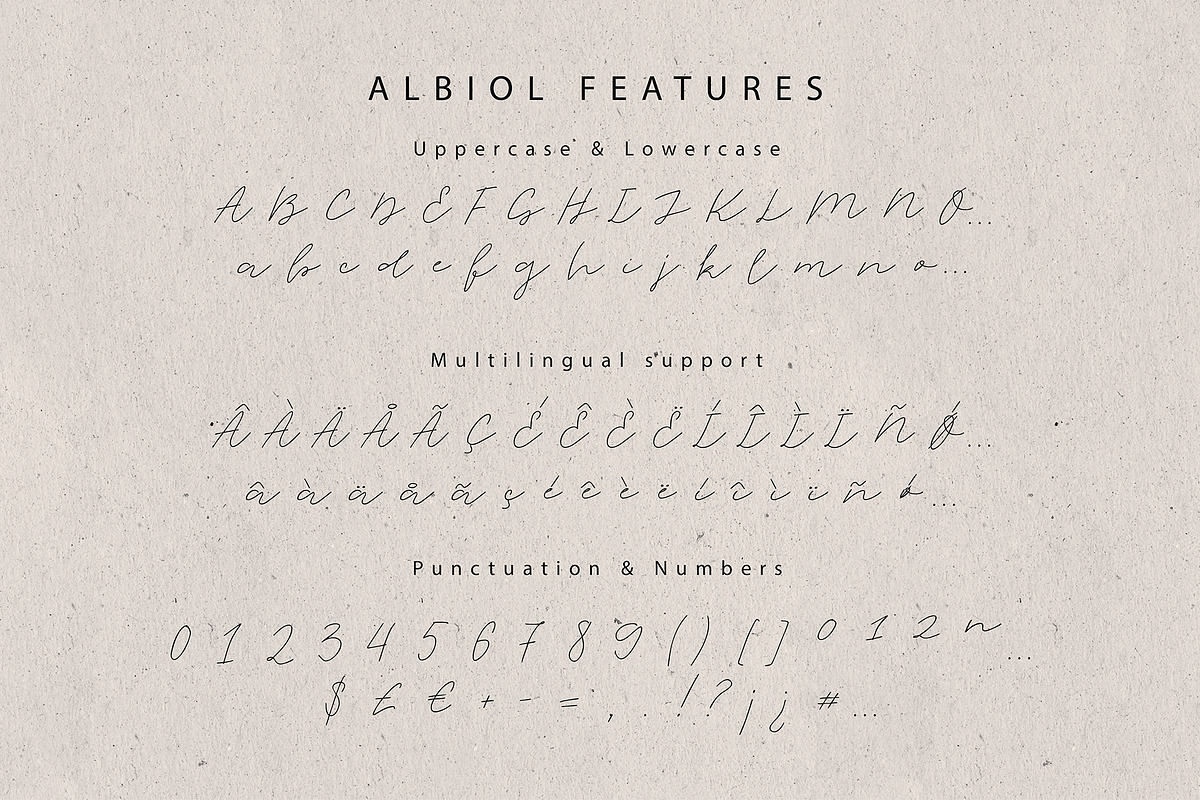 ALBIOL FEATURES
Uppercase & Lowercase
A B C D E F G H I J K L M N O...
a b c d e f g h i j k l m n o...
Multilingual support
Â À Ä Å Ã Ç É Ê È Ë Í Î Ì Ï Ñ Ǿ...
â à ä å ã ç é ê è ë í î ì ï ñ ǿ...
Punctuation & Numbers
0 1 2 3 4 5 6 7 8 9 ( ) [ ] ⁰ ¹ ² ⁿ ...
$ £ € + - = , . ! ? ¡ ¿ # ...